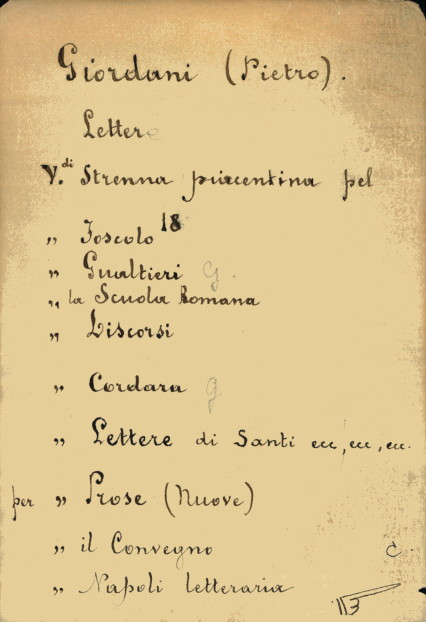 Giordani (Pietro).
Lettere
V.di Strenna piacentina pel
18
„ Foscolo
„ Gualtieri G.
„ la Scuola Romana
„ Discorsi
„ Cordara G
„ Lettere di Santi ecc, ecc, ecc.
per „ Prose (Nuove)
„ il Convegno
C.
„ Napoli letteraria
113